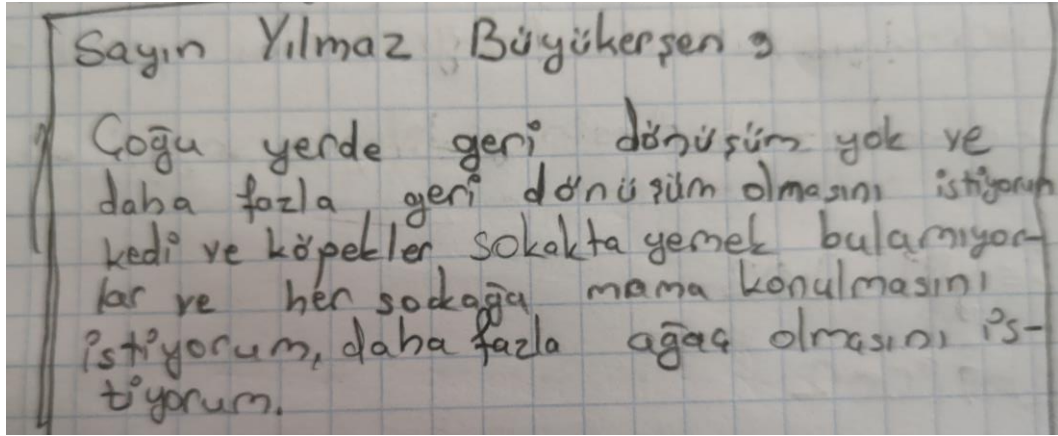 Sayın Yılmaz Büyükerşen,
Çoğu yerde geri dönüşüm yok ve
daha fazla geri dönüşüm olmasını istiyorum
kedi ve köpekler sokakta yemek bulamıyor-
lar ve her sokağa mama konulmasını
istiyorum, daha fazla ağaç olmasını is-
tiyorum.